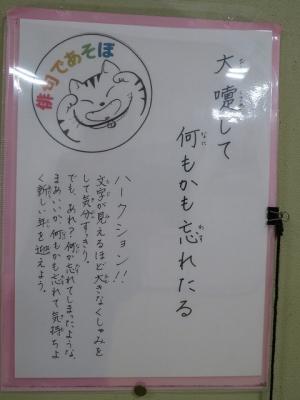 俳句であそぼ
大嚔して
何もかも忘れたる
ハークション!!
文字が見えるほど大きなくしゃみを
して気分すっきり。
でも、あれ?何か忘れてしまったような、
まあいいか、何もかも忘れて気持ちよ
く新しい年を迎えよう。